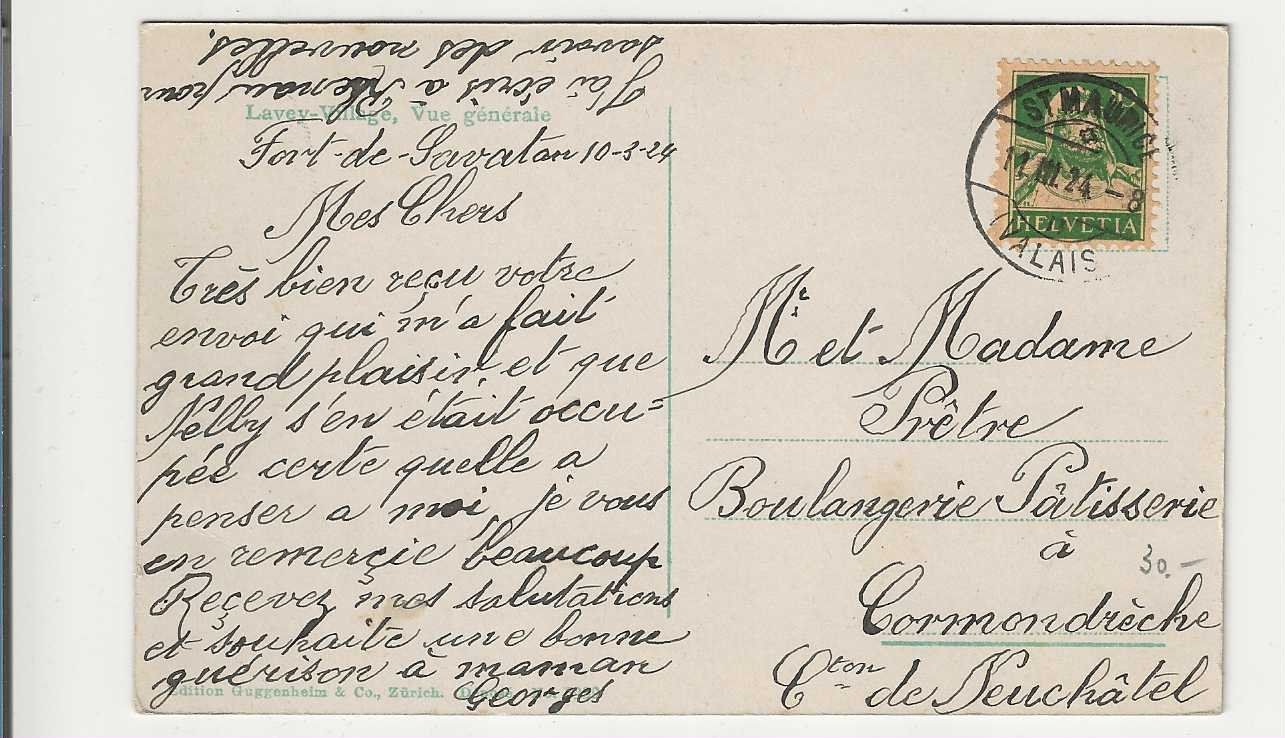 J'ai écris à Renan pour
savoir des nouvelles.
Lavey-Village, Vue générale
Fort-de-Savatan 10-3-24
Mes Chers
Très bien reçu votre
envoi qui m'a fait
grand plaisir, et que
Nelly s'en était occu=
pée certe quelle a
penser a moi, je vous
en remerçie beaucoup
Reçevez mes salutations
et souhaite une bonne
guérison à maman
Georges
Edition Guggenheim & Co., Zürich.
ST. MAURICE
11.III.24 - 8
VALAIS
HELVETIA
Mr et Madame
Prêtre
Boulangerie Pâtisserie
à
30.-
Cormondrèche
Cton de Neuchâtel